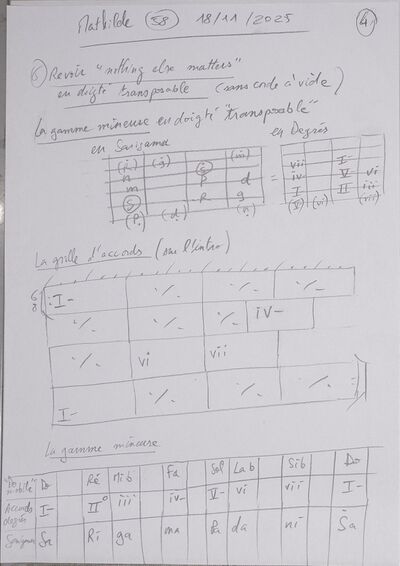 Mathilde (58) 18/11/2025
Revoir "nothing else matters"
en doigté transposable (sans corde à vide)
La gamme mineure en doigté "transposable"
en Sarigama en Degrés
n P d = iv- V- vi
m R g I- II iii
(P) (d) (n) (V) (vi) (vii)
La grille d'accords (sur l'intro)
6/8 I- ٪ ٪ ٪
٪ ٪ ٪ iv-
٪ vi vii
I- ٪ ٪ ٪
La gamme mineure
"Do mobile" Do Ré Mib Fa Sol Lab Sib Do
Accords degrés I- II° iii iv- V- vi vii I-
Sarigama Sa Ri ga ma Pa da ni Sa